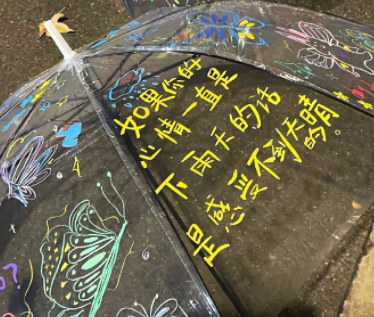 如果你的
心情一直是
下雨天的话
是感受不到天晴的。